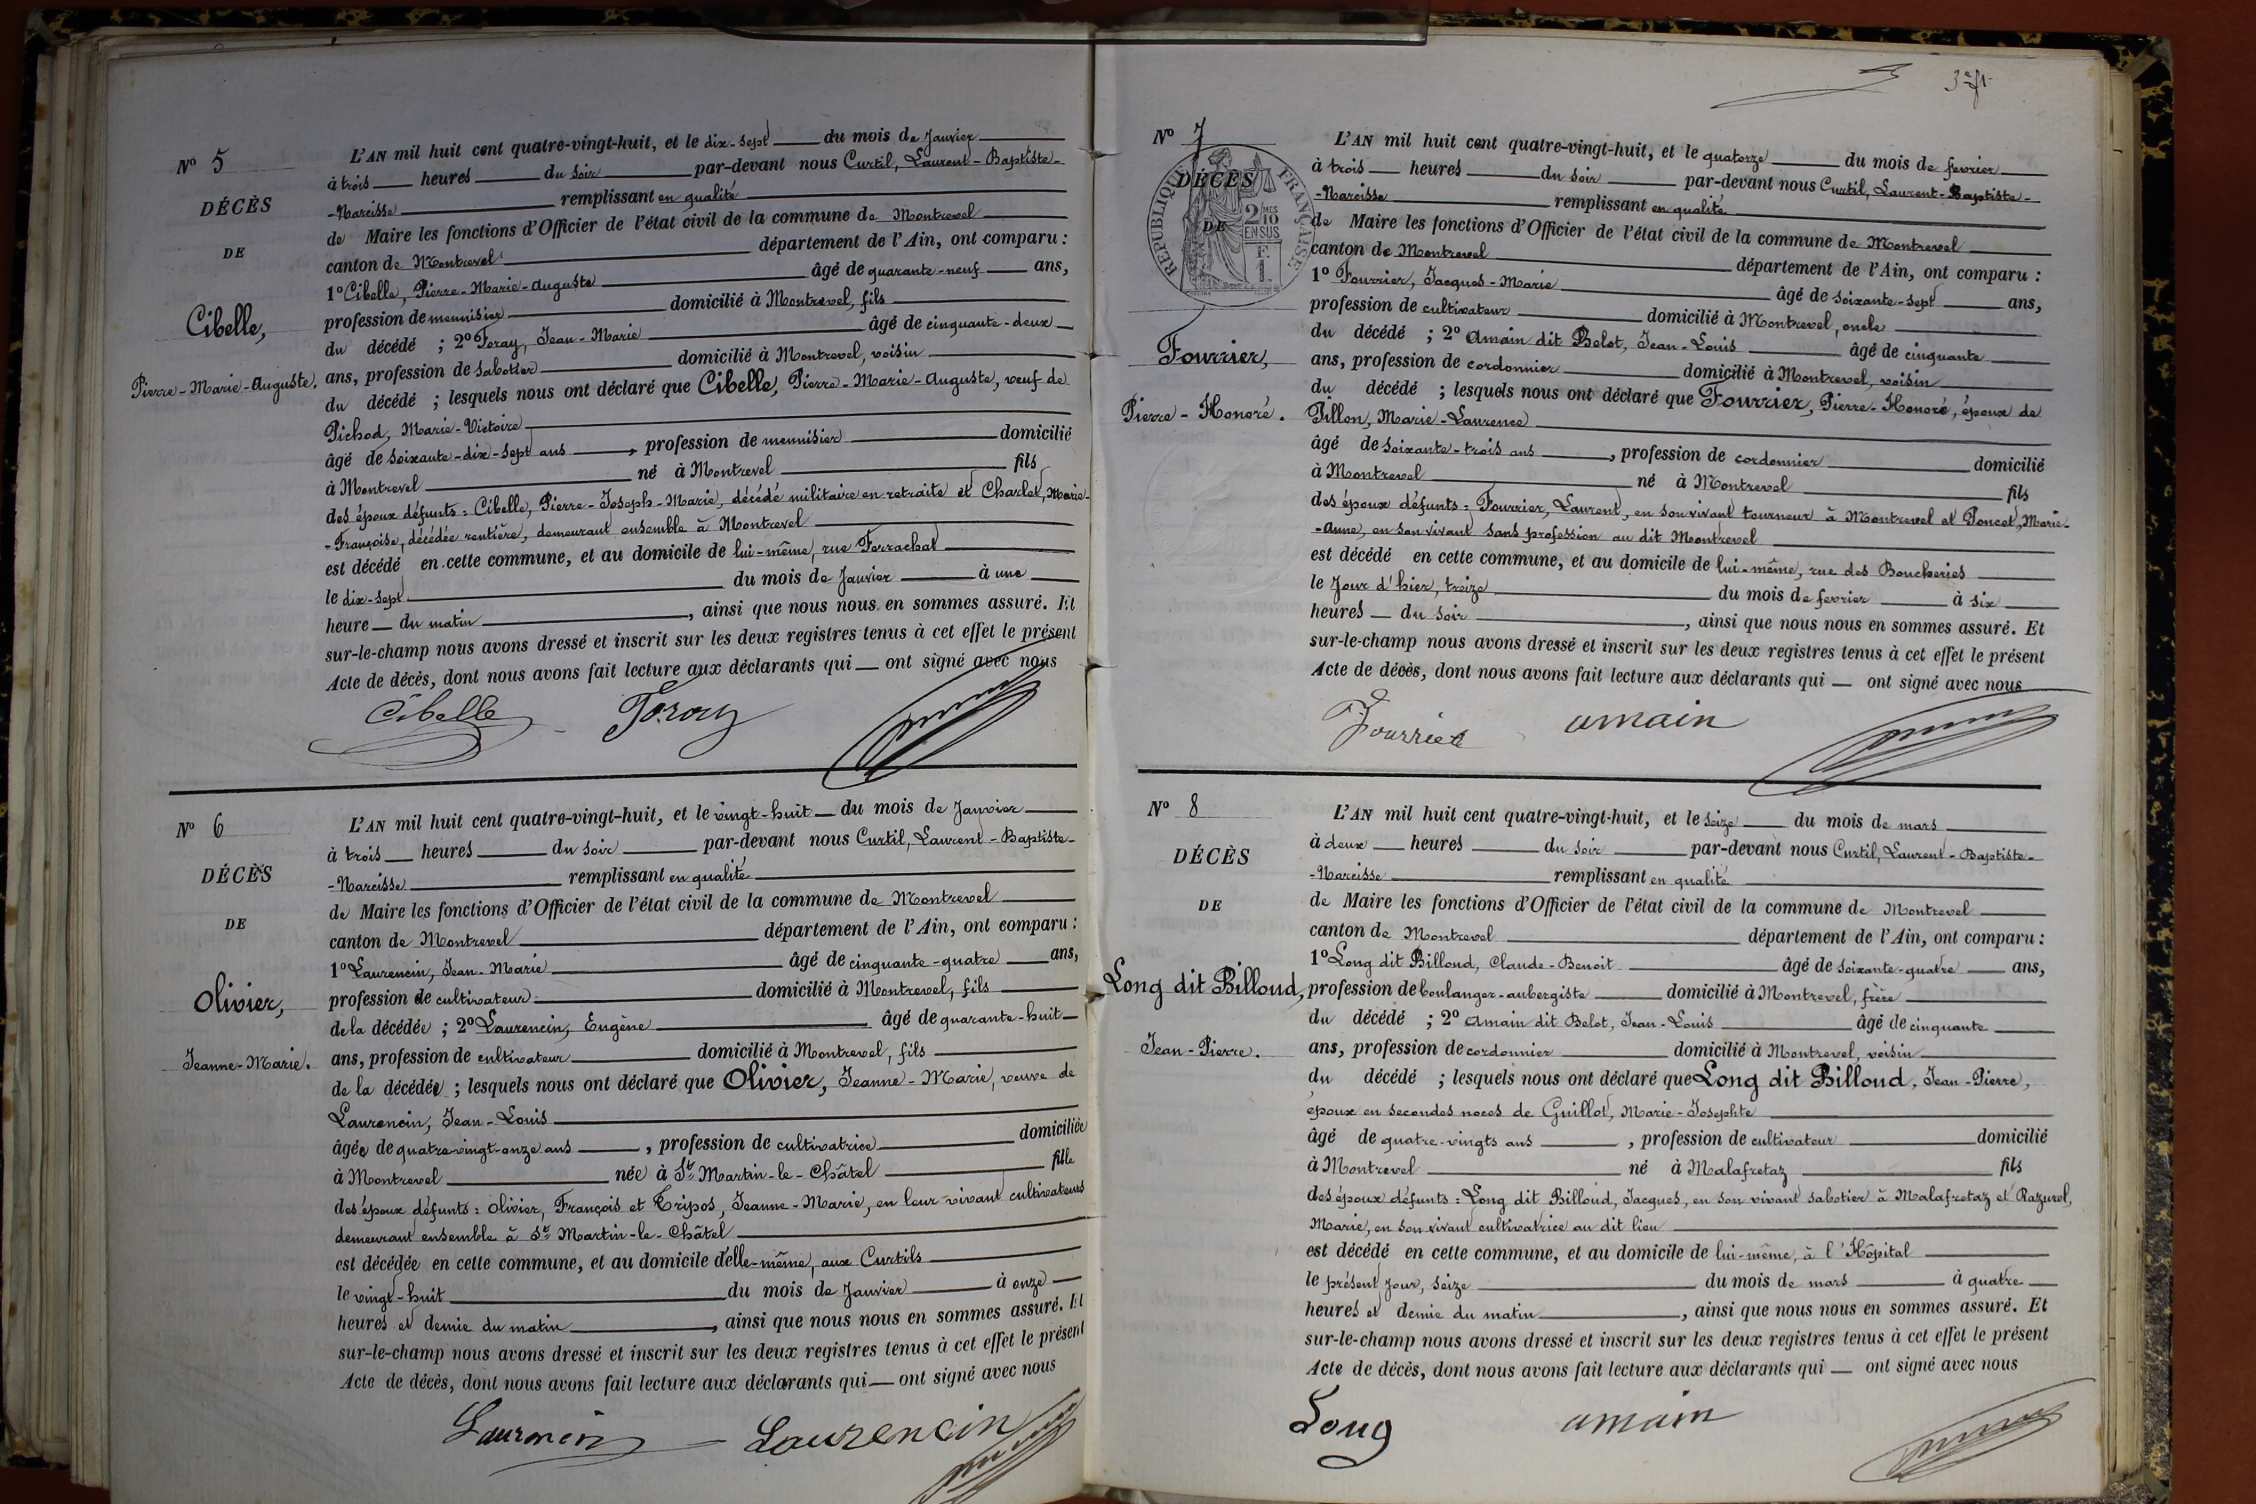 Nº 5
DÉCÈS
DE
Cibelle,
Pierre-Marie-Auguste.
L'AN mil huit cent quatre-vingt-huit, et le dix-sept du mois de Janvier
à trois heures du soir par-devant nous Curtil, Laurent-Baptiste-
-Narcisse remplissant en qualité
de Maire les fonctions d'Officier de l'état civil de la commune de Montrevel
canton de Montrevel département de l'Ain, ont comparu :
1º Cibelle, Pierre-Marie-Auguste âgé de quarante-neuf ans,
profession de menuisier domicilié à Montrevel, fils
du décédé ; 2º Foray, Jean-Marie âgé de cinquante-deux
ans, profession de sabotier domicilié à Montrevel, voisin
du décédé ; lesquels nous ont déclaré que Cibelle, Pierre-Marie-Auguste, veuf de
Pichod, Marie-Victoire
âgé de soixante-dix-sept ans, profession de menuisier domicilié
à Montrevel né à Montrevel fils
des époux défunts : Cibelle, Pierre-Joseph-Marie, décédé militaire en retraite et Charlet, Marie-
-Françoise, décédée rentière, demeurant ensemble à Montrevel
est décédé en cette commune, et au domicile de lui-même, rue Ferrachat
le dix-sept du mois de Janvier à une
heure du matin, ainsi que nous nous en sommes assuré. Et
sur-le-champ nous avons dressé et inscrit sur les deux registres tenus à cet effet le présent
Acte de décès, dont nous avons fait lecture aux déclarants qui ont signé avec nous
Cibelle Foray
Nº 6
DÉCÈS
DE
Olivier,
Jeanne-Marie.
L'AN mil huit cent quatre-vingt-huit, et le vingt-huit du mois de Janvier
à trois heures du soir par-devant nous Curtil, Laurent-Baptiste-
-Narcisse remplissant en qualité
de Maire les fonctions d'Officier de l'état civil de la commune de Montrevel
canton de Montrevel département de l'Ain, ont comparu :
1º Laurencin, Jean-Marie âgé de cinquante-quatre ans,
profession de cultivateur domicilié à Montrevel, fils
de la décédée ; 2º Laurencin, Eugène âgé de quarante-huit
ans, profession de cultivateur domicilié à Montrevel, fils
de la décédée ; lesquels nous ont déclaré que Olivier, Jeanne-Marie, veuve de
Laurencin, Jean-Louis
âgée de quatre-vingt-onze ans, profession de cultivatrice domiciliée
à Montrevel née à St Martin-le-Châtel fille
des époux défunts : Olivier, François et Tripos, Jeanne-Marie, en leur vivant cultivateurs
demeurant ensemble à St Martin-le-Châtel
est décédée en cette commune, et au domicile d'elle-même, aux Curtils
le vingt-huit du mois de Janvier à onze
heures et demie du matin, ainsi que nous nous en sommes assuré. Et
sur-le-champ nous avons dressé et inscrit sur les deux registres tenus à cet effet le présent
Acte de décès, dont nous avons fait lecture aux déclarants qui ont signé avec nous
Laurencin Laurencin
Nº 7
RÉPUBLIQUE FRANÇAISE
2/10 MES
EN SUS
F.
1.
DÉCÈS
DE
Fourrier,
Pierre-Honoré.
L'AN mil huit cent quatre-vingt-huit, et le quatorze du mois de fevrier
à trois heures du soir par-devant nous Curtil, Laurent-Baptiste-
-Narcisse remplissant en qualité
de Maire les fonctions d'Officier de l'état civil de la commune de Montrevel
canton de Montrevel département de l'Ain, ont comparu :
1º Fourrier, Jacques-Marie âgé de soixante-sept ans,
profession de cultivateur domicilié à Montrevel, oncle
du décédé ; 2º Amain dit Belot, Jean-Louis âgé de cinquante
ans, profession de cordonnier domicilié à Montrevel, voisin
du décédé ; lesquels nous ont déclaré que Fourrier, Pierre-Honoré, époux de
Pillon, Marie-Laurence
âgé de soixante-trois ans, profession de cordonnier domicilié
à Montrevel né à Montrevel fils
des époux défunts : Fourrier, Laurent, en son vivant tourneur à Montrevel et Poncet, Marie-
-Anne, en son vivant sans profession au dit Montrevel
est décédé en cette commune, et au domicile de lui-même, rue des Boucheries
le Jour d'hier, treize du mois de fevrier à six
heures du soir, ainsi que nous nous en sommes assuré. Et
sur-le-champ nous avons dressé et inscrit sur les deux registres tenus à cet effet le présent
Acte de décès, dont nous avons fait lecture aux déclarants qui ont signé avec nous
Fourrier amain
Nº 8
DÉCÈS
DE
Long dit Billoud,
Jean-Pierre.
L'AN mil huit cent quatre-vingt-huit, et le seize du mois de mars
à deux heures du soir par-devant nous Curtil, Laurent-Baptiste-
-Narcisse remplissant en qualité
de Maire les fonctions d'Officier de l'état civil de la commune de Montrevel
canton de Montrevel département de l'Ain, ont comparu :
1º Long dit Billoud, Claude-Benoit âgé de soixante-quatre ans,
profession de boulanger-aubergiste domicilié à Montrevel, frère
du décédé ; 2º Amain dit Belot, Jean-Louis âgé de cinquante
ans, profession de cordonnier domicilié à Montrevel, voisin
du décédé ; lesquels nous ont déclaré que Long dit Billoud, Jean-Pierre,
époux en secondes noces de Guillot, Marie-Josephte
âgé de quatre-vingts ans, profession de cultivateur domicilié
à Montrevel né à Malafretaz fils
des époux défunts : Long dit Billoud, Jacques, en son vivant sabotier à Malafretaz et Razurel,
Marie, en son vivant cultivatrice au dit lieu
est décédé en cette commune, et au domicile de lui-même, à l'Hôpital
le présent Jour, seize du mois de mars à quatre
heures et demie du matin, ainsi que nous nous en sommes assuré. Et
sur-le-champ nous avons dressé et inscrit sur les deux registres tenus à cet effet le présent
Acte de décès, dont nous avons fait lecture aux déclarants qui ont signé avec nous
Long amain